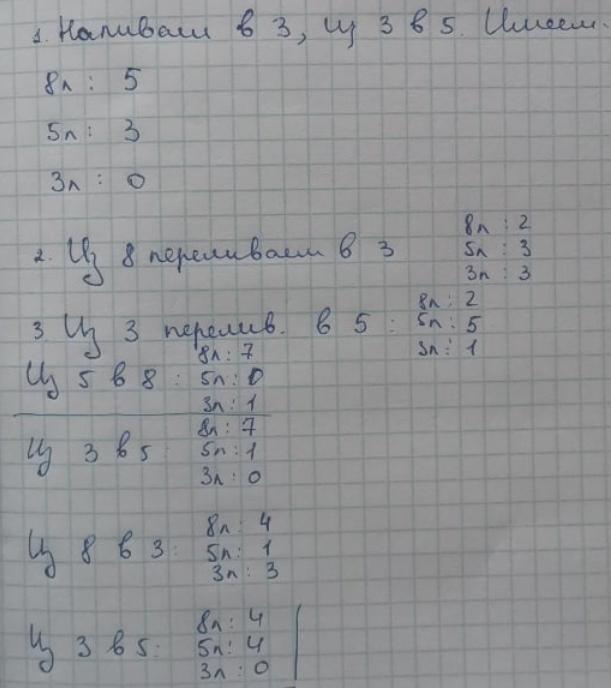 1. Наливаем в 3, из 3 в 5. Имеем:
8л: 5
5л: 3
3л: 0
2. Из 8 переливаем в 3
8л: 2
5л: 3
3л: 3
3. Из 3 перелив. в 5:
8л: 2
5л: 5
3л: 1
Из 5 в 8:
8л: 7
5л: 0
3л: 1
Из 3 в 5:
8л: 7
5л: 1
3л: 0
Из 8 в 3:
8л: 4
5л: 1
3л: 3
Из 3 в 5:
8л: 4
5л: 4
3л: 0